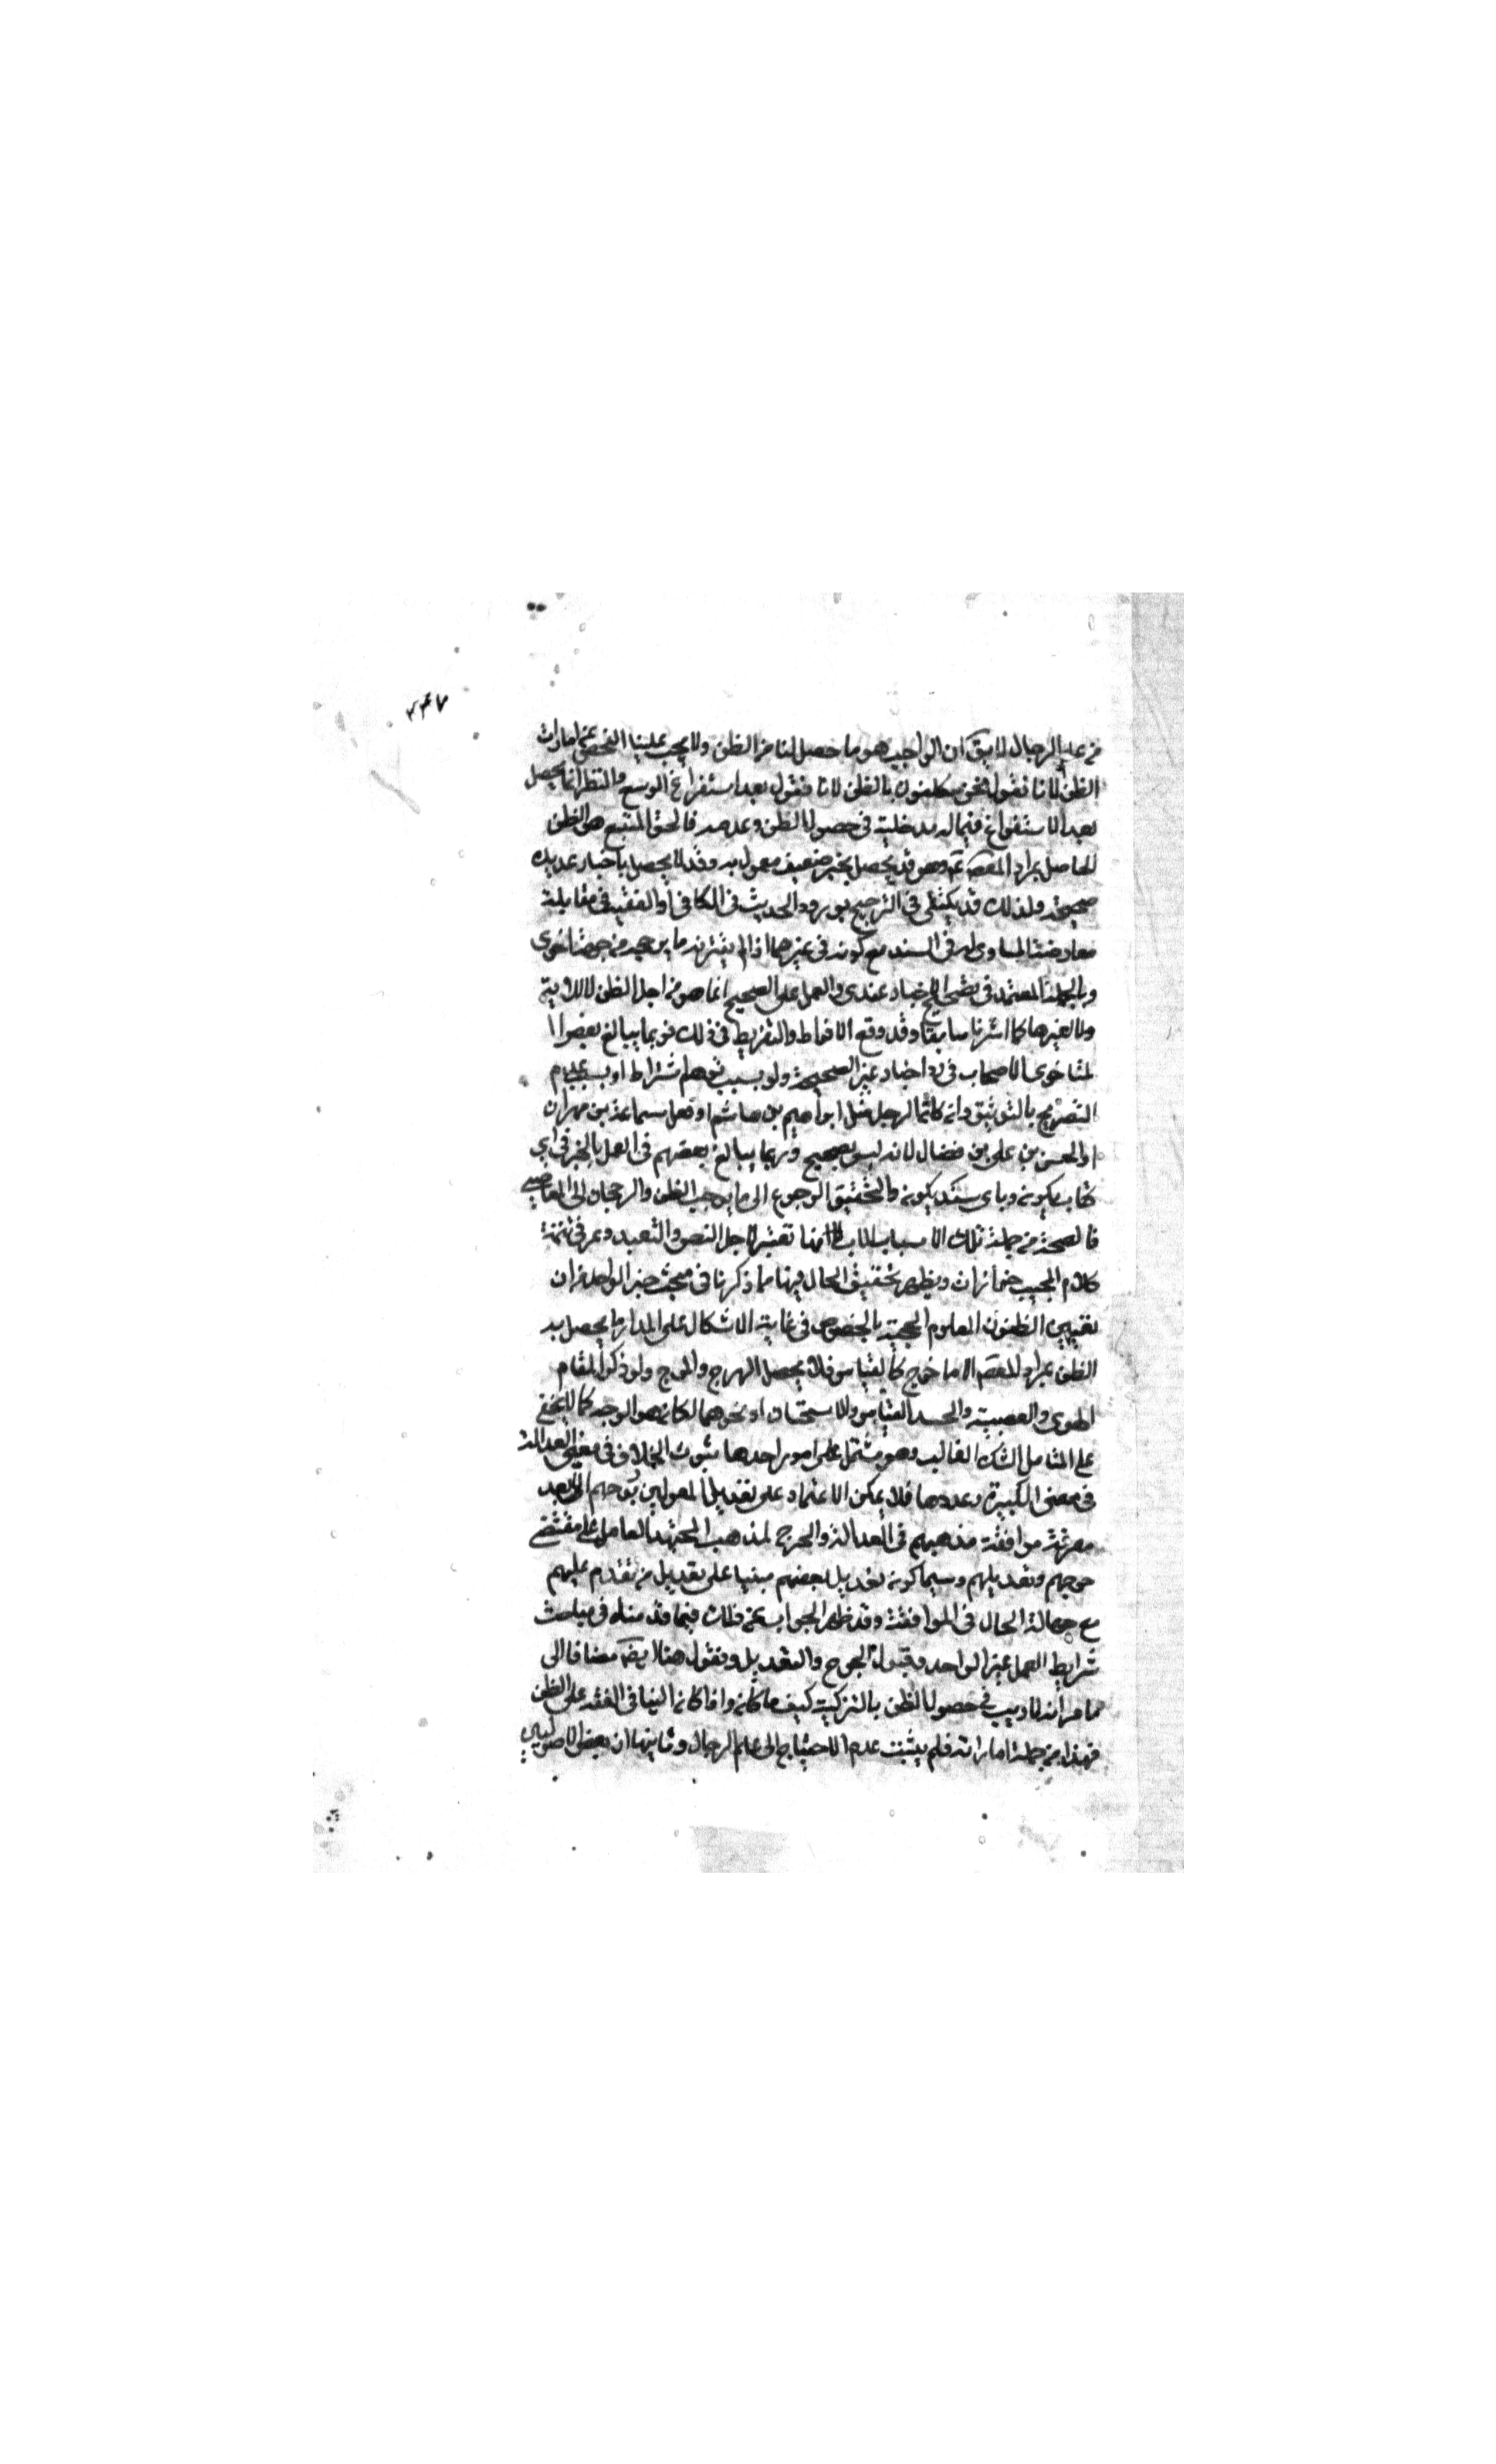 ٤٤٧
من علم الرجال لا يق ان الواجب هو ما حصل لنا من الظن ولا يجب علينا الفحص عن امارات
الظن لانا نقول نحن مكلفون بالظن لانا نقول بعد استفراغ الوسع والنظر انما يحصل
بعد الاستفراغ فيما له مدخلية في حصول الظن وعدمه فالحق المتبع هو الظن
الحاصل بمراد المعصوم ع وهو قد يحصل بخبر ضعيف معمول به وقد لا يحصل باخبار عديدة
صحيحة ولذلك قد يكتفى في الترجيح بورود الحديث في الكافي او الفقيه في مقابلة
معارضة المساوى له في السند مع كونه في غيرهما اذا لم يقترنه ما يرجحه من جهة اخرى
وبالجملة المعتمد في تصحيح الاخبار عندى والعمل على الصحيح انما هو من اجل الظن لا للآية
ولا لغيرها كما اشرنا سابقا وقد وقع الافراط والتفريط في ذلك فربما يبالغ بعض
متاخرى الاصحاب في رد اخبار غير الصحيحة ولو بسبب توهم اشتراط او بسبب عدم
التصريح بالتوثيق وان كان الرجل مثل ابراهيم بن هاشم او مثل سماعة بن مهران
او الحسن بن علي بن فضال لانه ليس بصحيح وربما يبالغ بعضهم في العمل بالخبر في اي
كتاب يكون وباى سند يكون والتحقيق الرجوع الى ما يوجب الظن والرجحان
فالصحة من جملة تلك الاسباب لا انها تعتبر لاجل النص والتعبد وعرفى تتمة
كلام المجيب حزازات ويظهر تحقيق الحال فيها مما ذكرنا في مبحث خبر الواحد من ان
تعيين الظنون المعلوم الحجية بالخصوص في غاية الاشكال على المدار ما يحصل به
الظن بمراد المعصوم الا ما خرج كالقياس فلا يحصل الهرج والمرج ولو ذكر المقام
الهوى والعصبية والحسد القياس والاستحسان او نحوهما لكان هو الوجه كما لا يخفى
على المتامل الشك الغالب وهو مشتمل على امور احدها ثبوت الخلاف في معنى العدالة
في معنى الكبيرة وعددها فلا يمكن الاعتماد على تعديل المعدلين وجرحهم الا بعد
معرفة موافقة مذهبهم في العدالة والجرح لمذهب المجتهد العامل على مقتضى
جرحهم وتعديلهم وسيما كون تعديل بعضهم مبنيا على تعديل من تقدم عليهم
مع جهالة الحال في الموافقة وقد ظهر الجواب عن ذلك فيما قدمناه في مباحث
شرايط العمل بخبر الواحد وقبول الجرح والتعديل ونقول هنا ايضا مضافا الى
ما مر انه لا ريب في حصول الظن بالتزكية كيف ما كان واذا كان البناء في الفقه على الظن
فهذا من جملة اماراته فلم يثبت عدم الاحتياج الى علم الرجال وثانيها ان بعض الاصوليين